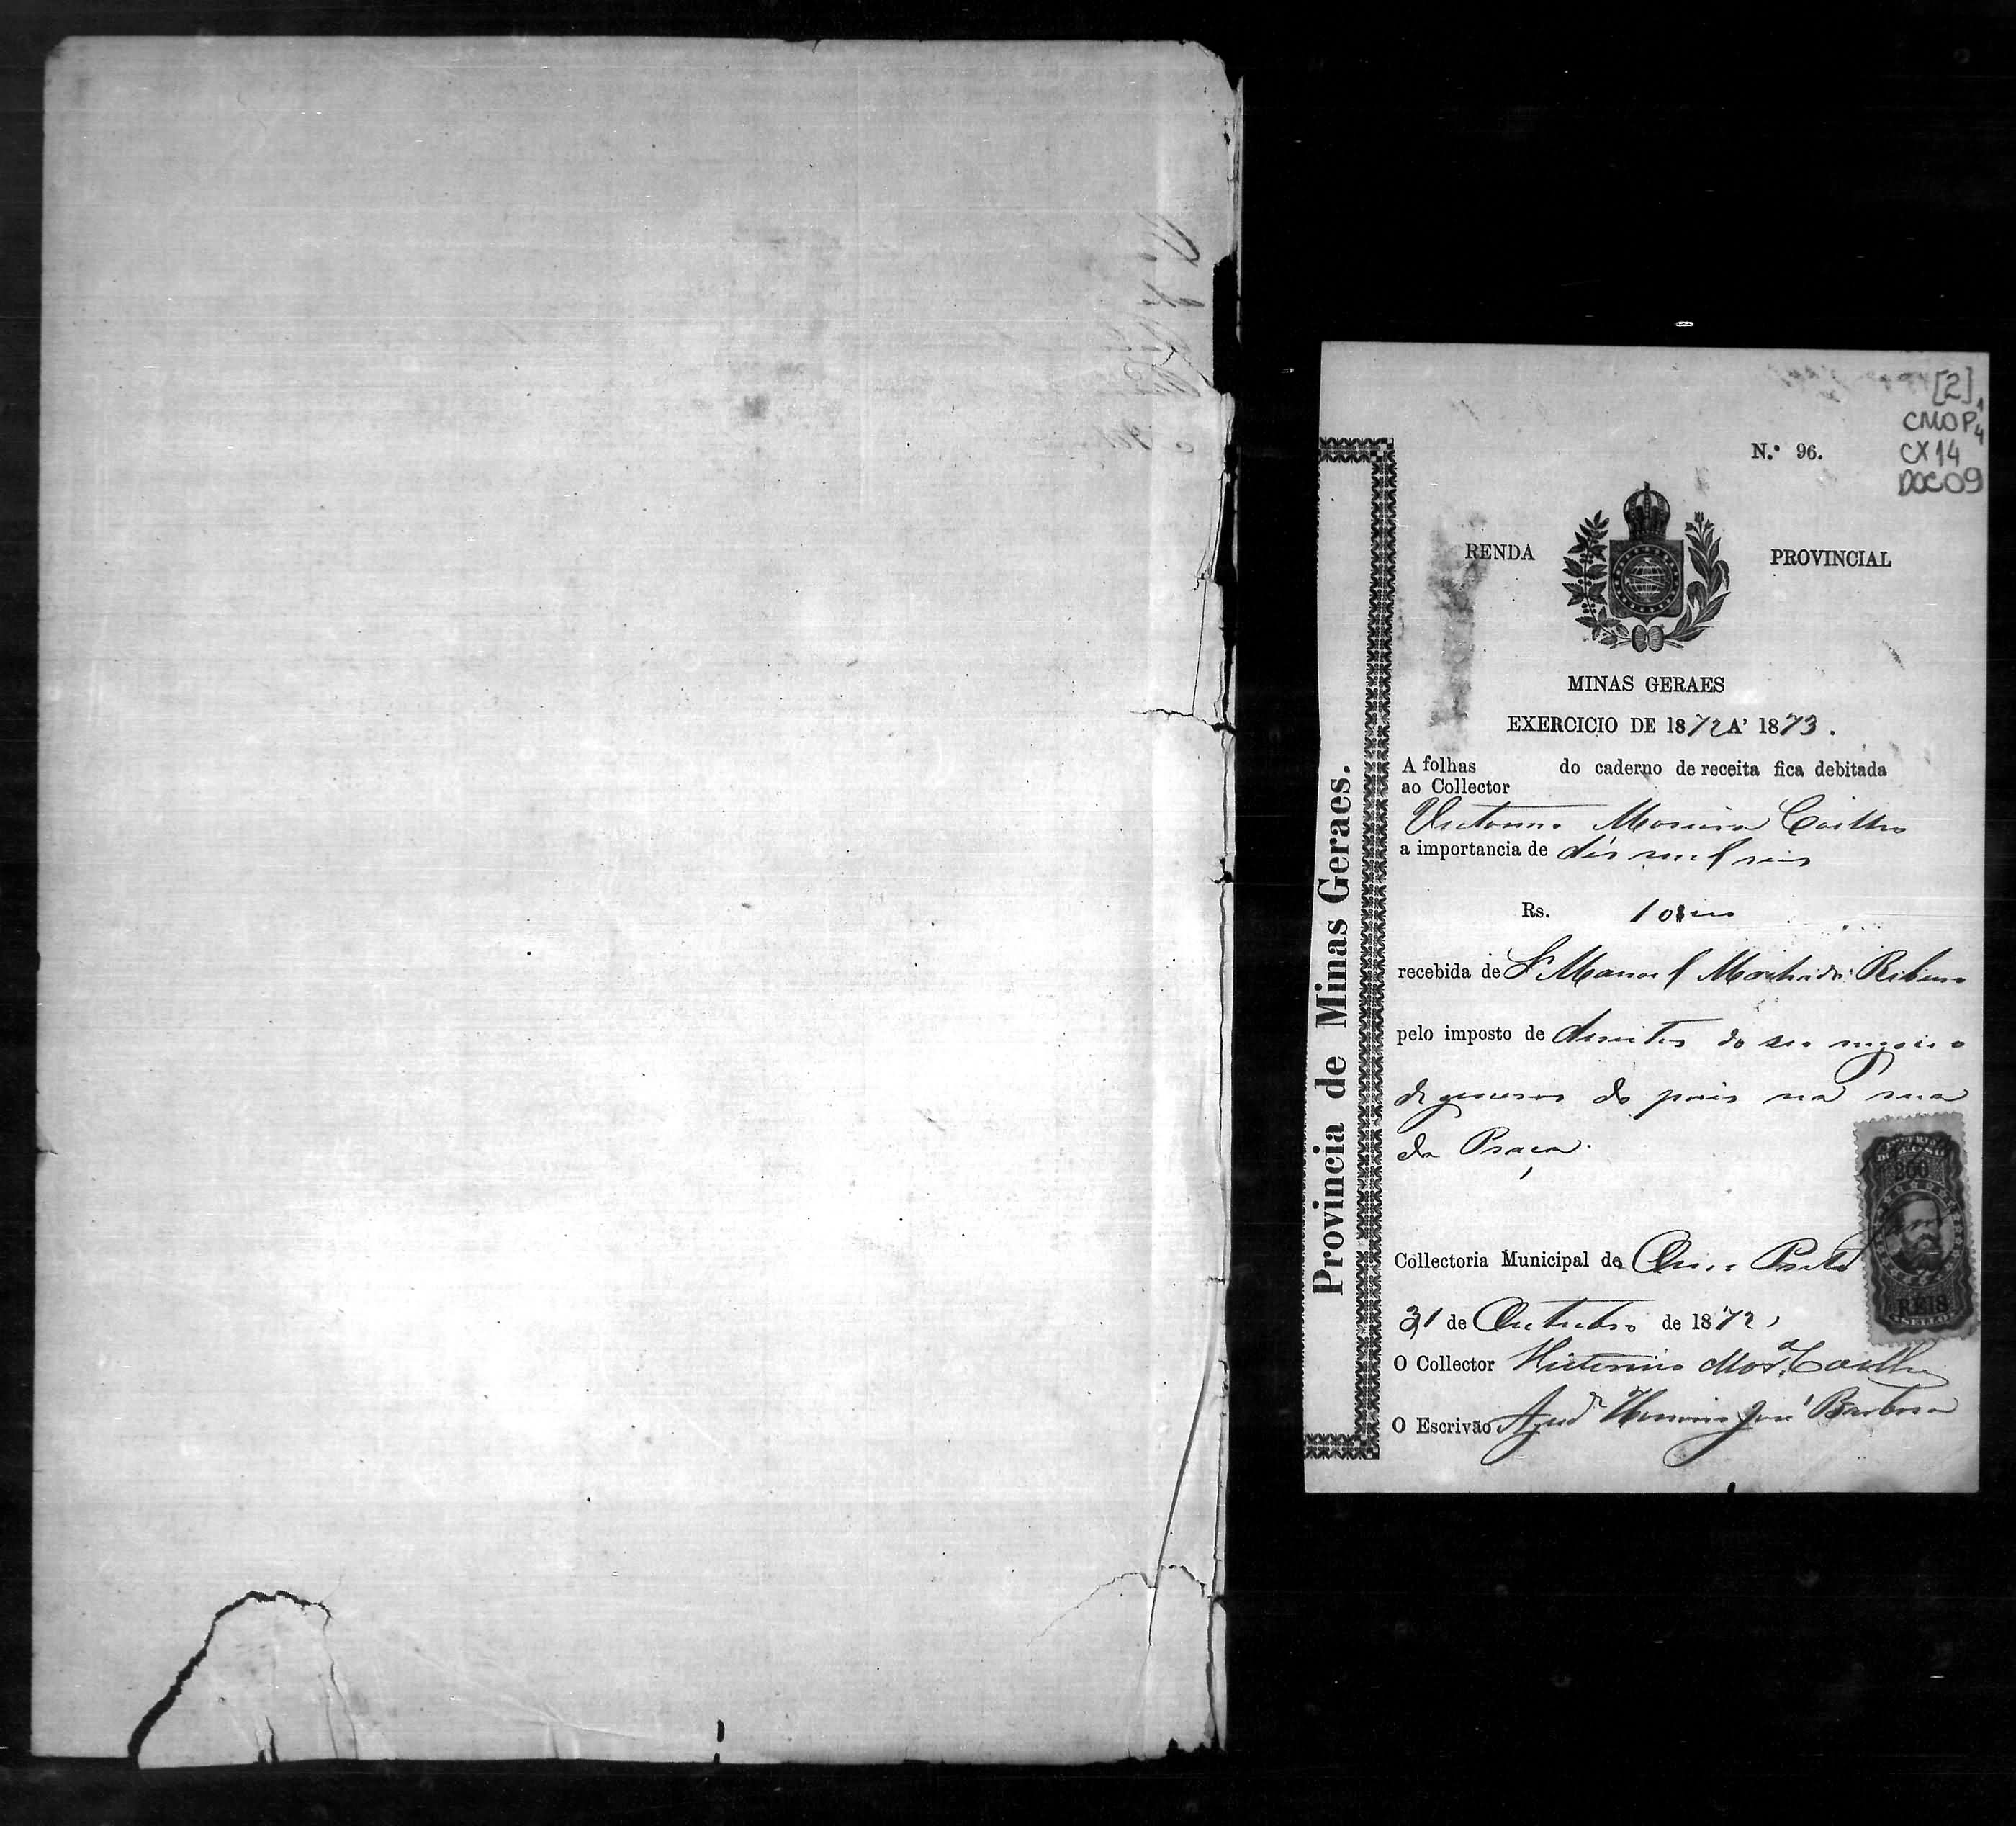 [2]
CMOP 1/4
CX14
DOC 09
N.º 96.
RENDA PROVINCIAL
MINAS GERAES
EXERCICIO DE 1872 A' 1873.
A folhas do caderno de receita fica debitada
ao Collector
Victorino Moreira Coelho
a importancia de dés mil reis
Rs. 10$
recebida de Sr Manoel Machado Ribeiro
pelo imposto de direitos do seo negocio
de generos do pais na rua
da Praça.
200
REIS
SELLO
Collectoria Municipal de Ouro Preto
31 de Outubro de 1872,
O Collector Victorino Morª Coelho
O Escrivão José Barbosa
Provincia de Minas Geraes.